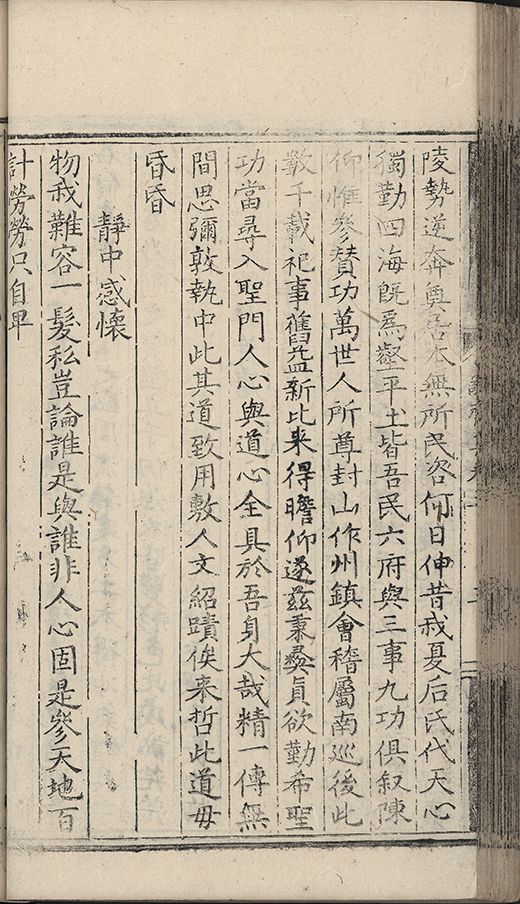 陵勢逆奔奠居本無所民咨何日伸昔我夏后氏代天心
獨勤四海旣爲壑平土皆吾民六府與三事九功俱叙陳
仰惟參賛功萬世人所尊封山作州鎮會稽屬南巡後此
數千載祀事舊益新比来得瞻仰遂兹秉彝眞欲勤希聖
功當尋入聖門人心與道心全具於吾身大哉精一傳無
間思彌敦執中此其道致用敷人文紹蹟俟来哲此道毋
昏昏
靜中感懷
物我難容一髮私豈論誰是與誰非人心固是參天地百
計勞勞只自卑